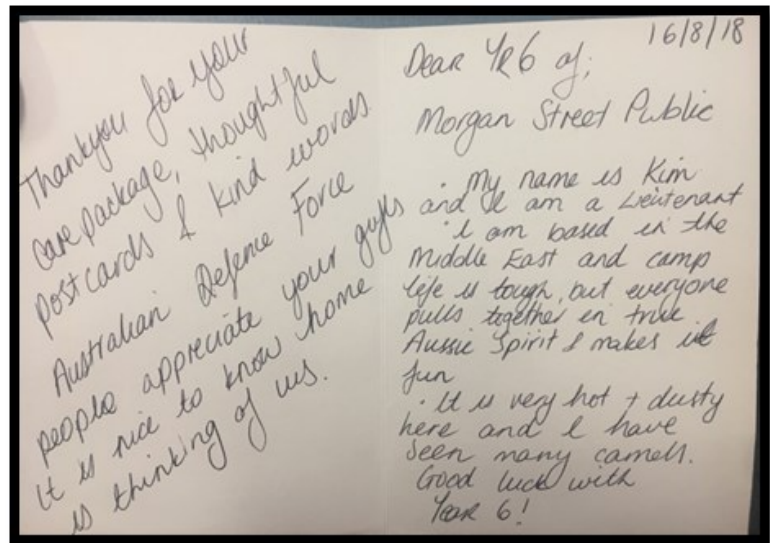 Thankyou for your
care package, thoughtful
postcards & kind words
Australian Defence Force
people appreciate your guys
It is nice to know home
is thinking of us.
16/8/18
Dear YR6 of;
Morgan Street Public
· My name is Kim
and I am a Lieutenant
· I am based in the
Middle East and camp
life is tough, but everyone
pulls together in true
Aussie Spirit & makes it
fun
· It is very hot + dusty
here and I have
seen many camels.
Good luck with
Year 6!